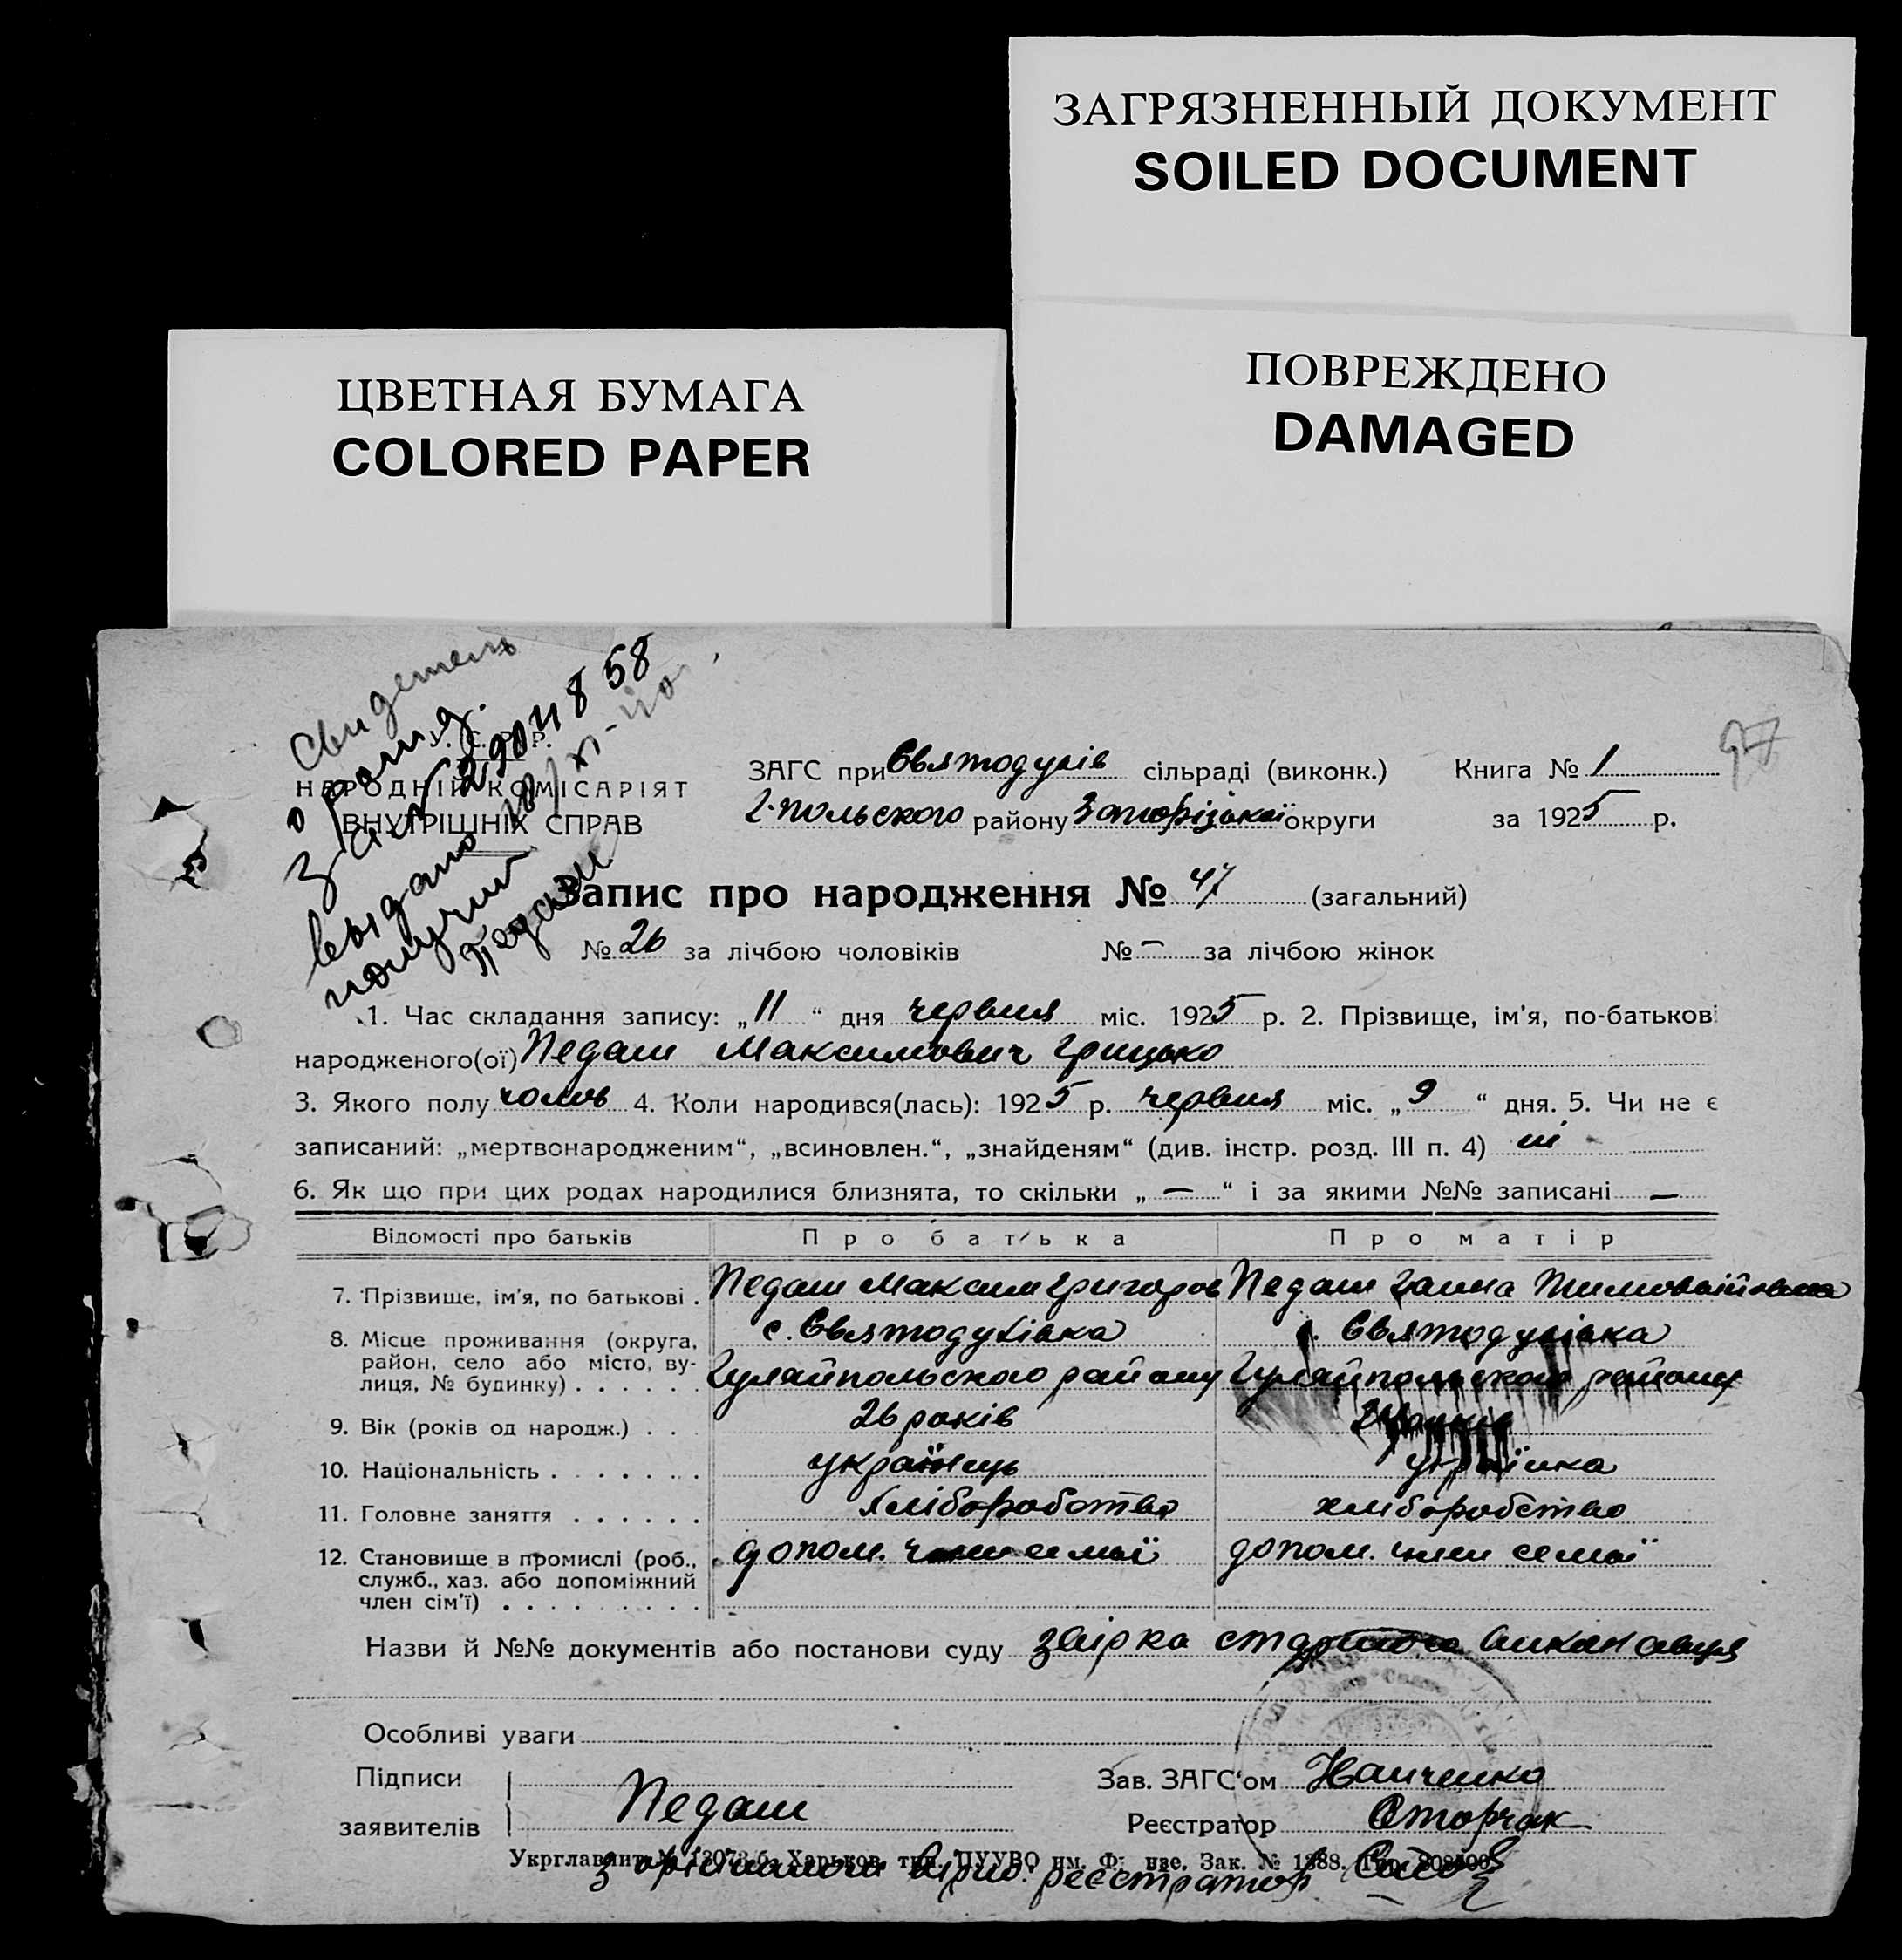 ЗАГРЯЗНЕННЫЙ ДОКУМЕНТ
SOILED DOCUMENT
ЦВЕТНАЯ БУМАГА
COLORED PAPER
ПОВРЕЖДЕНО
DAMAGED
Свидетель
о рожд.
выдано
получил
Педаш
97
У. С. Р. Р.
НАРОДНІЙ КОМІСАРІЯТ
ВНУТРІШНІХ СПРАВ
ЗАГС при Святодухів сільраді (виконк.) Книга № 1
Г-польского району Запорізької округи за 1925 р.
Запис про народження № 47 (загальний)
№ 26 за лічбою чоловіків № — за лічбою жінок
1. Час складання запису: „11“ дня червня міс. 1925 р. 2. Прізвище, ім'я, по-батькові
народженого(ої) Педаш Максимович Грицько
3. Якого полу чолов 4. Коли народився(лась): 1925 р. червня міс. „9“ дня. 5. Чи не є
записаний: „мертвонародженим“, „всиновлен.“, „знайденям“ (див. інстр. розд. III п. 4) ні
6. Як що при цих родах народилися близнята, то скільки „—“ і за якими №№ записані —
Відомості про батьків Про батька Про матір
7. Прізвище, ім'я, по батькові . Педаш Максим Григоров Педаш Ганна
8. Місце проживання (округа, с. Святодухівка с. Святодухівка
район, село або місто, ву-
лиця, № будинку) . . . . . . Гуляйпольского району Гуляйпольского району
9. Вік (років од народж.) . . . 26 років
10. Національність . . . . . . . українець українка
11. Головне заняття . . . . . . хліборобство хліборобство
12. Становище в промислі (роб., допом. член семьї допом. член семьї
служб., хаз. або допоміжний
член сім'ї) . . . . . . . . .
Назви й №№ документів або постанови суду звірка
Особливі уваги
Підписи
заявителів Педаш
Зав. ЗАГС'ом
Реєстратор
Укрглавлит № 13073/б. Харьков, тип. ПУУВО им. Ф. Зак. № 1388.
з орігіналом вірно. реєстратор